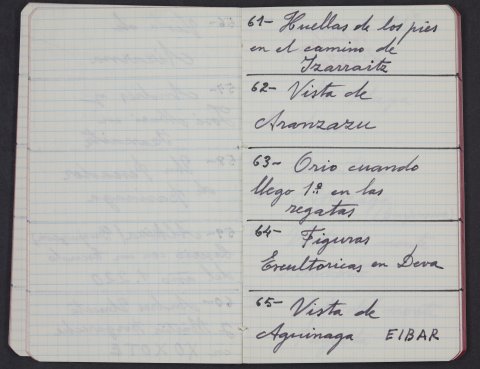 61- Huellas de los pies
en el camino de
Izarraitz
62- Vista de
Aranzazu
63- Orio cuando
llego 1º en las
regatas
64- Figuras
Escultoricas en Deva
65- Vista de
Aguinaga EIBAR